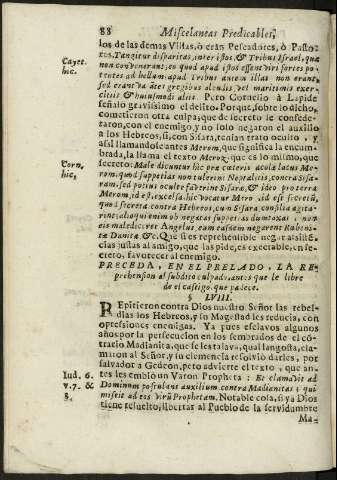 88 Miscelaneas Predicables,
los de las demas Villas, ò eran Pescadores, ò Pasto-
res. Tangitur disparitas, inter istos, & Tribus Israel, quæ
Cayet. hic.
non convenerant, eo quod apud istos essent viri fortes po-
tentes ad bellum. apud Tribus autem illas non erant,
sed erant vacantes gregibus alendis, vel maritimis exer-
citiis & huiusmodi aliis. Pero Cornelio à Lapide
señalo gravissimo el delito. Porque, sobre lo dicho,
cometieron otra culpa, que de secreto se confede-
raron, con el enemigo, y no solo negaron el auxilio
a los Hebreos, si, con Sisara, tenian trato oculto, y
assi llamandose antes Merom, que significa la encum-
brada, la llama el texto Meroz, que es lo mismo, que
Corn, hic,
secreto: Male dicuntur hic præ cæteris acolæ locus Me-
rom, quod suppetias non tulerint Nepralicis, contra Sisa-
ram, sed potius oculte faverint Sisaræ, & ideo pro terra
Merom, id est, excelsa hic vocatur Meroz, id est secretũ,
quod secreta contra Hebreos, cum Sisara, consilia agita-
rint; alioqui enim ob negatas suppetias dumtaxat, non
eis maledicerer Angelus, cum easdem negarent Rubeni-
tæ Danitæ &c. Que si es reprehensible negar assistẽ-
cias justas al amigo, que las pide, es execrable, en se-
creto, favorecer al enemigo.
PRECEDA, EN EL PRELADO, LA RE-
prehension al subdito culpado, antes que le libre
de el castigo, que padece.
§ LVIII.
REpitieron contra Dios nuestro Señor las rebel-
dias los Hebreos, y su Magestad les reducia, con
opresiones enemigas. Ya pues esclavos algunos
años por la persecucion en los sembrados de el cõ-
tratio Madianita, que se los talava, qual langosta, cla-
maron al Señor, y su clemencia resolviò darles, por
salvador a Gedeon, pero advierte el texto, que an-
Iud. 6. v. 7. & 8.
tes les embió un Varon Propheta: Et clamavit ad
Dominum postulans auxilium contra Madianitas; qui
misit ad eos virũ Prophetam. Notable cosa, si ya Dios
tiene resuelto, libertar al Pueblo de la servidumbre
Ma-